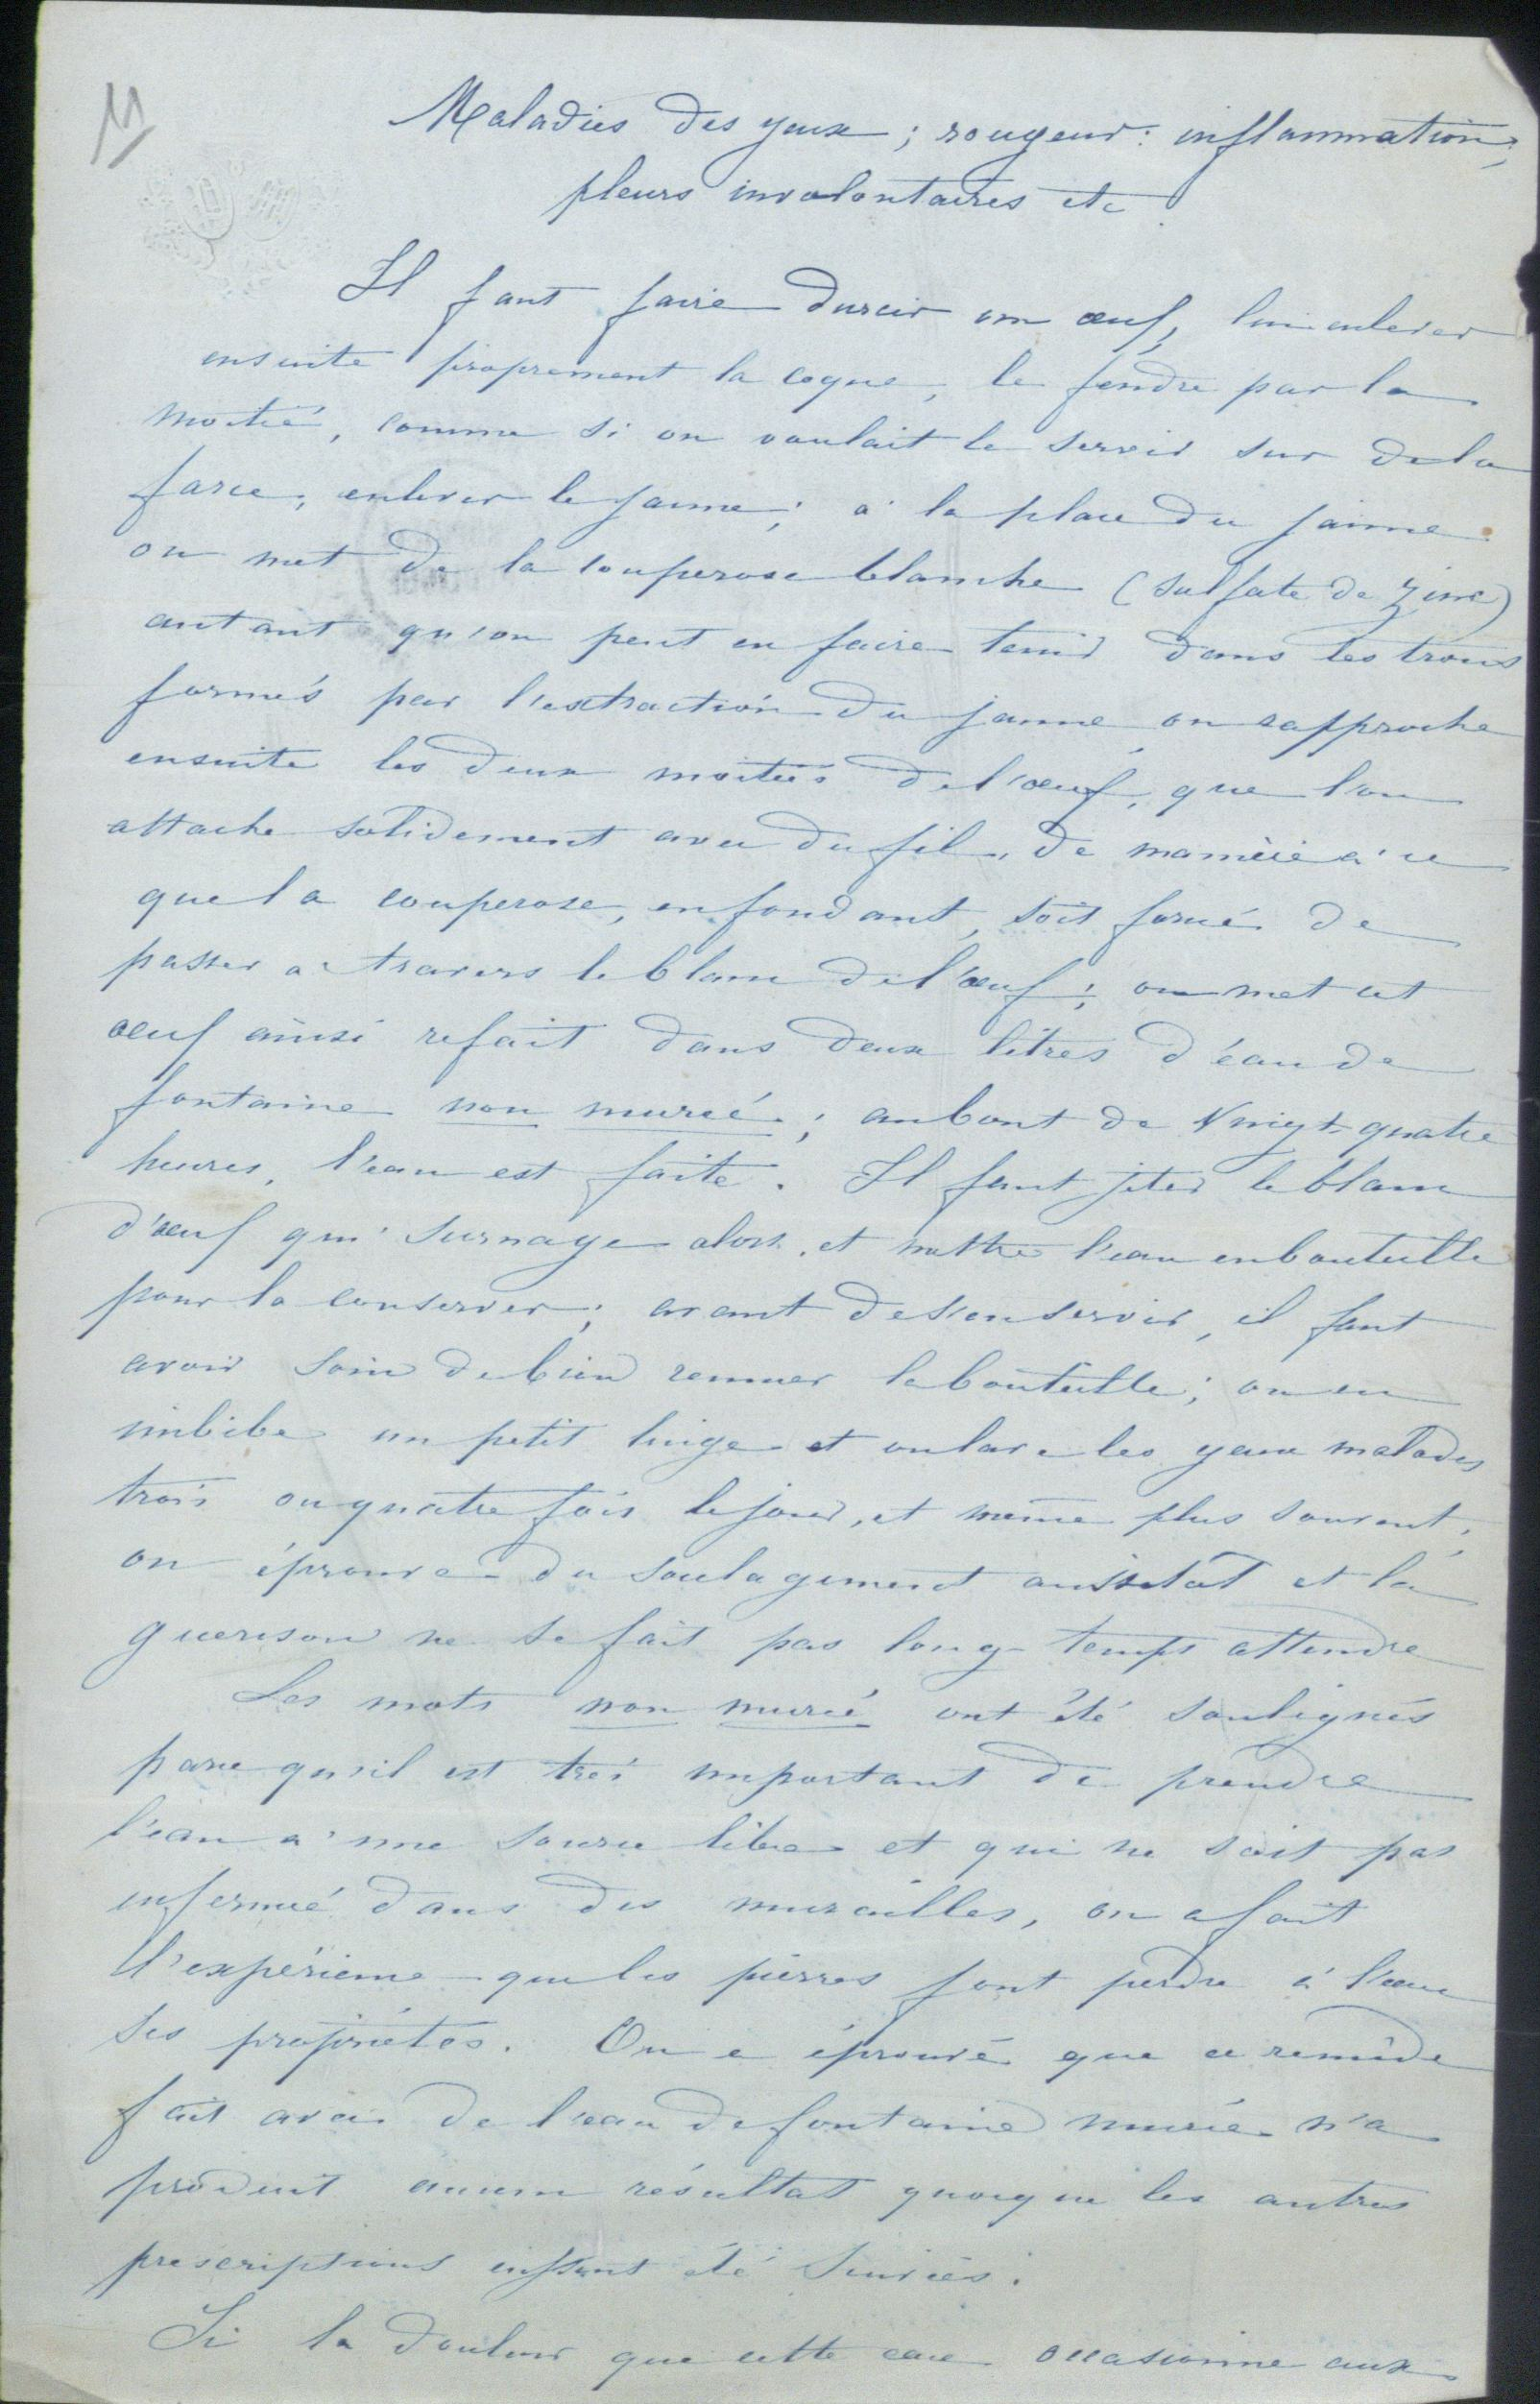 11
Maladies des yeux ; rougeur : inflammation ;
pleurs involontaires etc.
Il faut faire durcir un œuf, lui enlever
ensuite proprement la coque, le fendre par la
moitié, comme si on voulait le servir sur de la
farce, enlever le jaune ; à la place du jaune
on met de la couperose blanche (sulfate de zinc)
autant qu'on peut en faire tenir dans les trous
formés par l'extraction du jaune on rapproche
ensuite les deux moitiés de l'œuf, que l'on
attache solidement avec du fil, de manière à ce
que la couperose, en fondant, soit forcée de
passer à travers le blanc de l'œuf ; on met cet
œuf ainsi refait dans deux litres d'eau de
fontaine non murée ; au bout de vingt-quatre
heures, l'eau est faite. Il faut jeter le blanc
d'œuf qui surnage alors, et mettre l'eau en bouteille
pour la conserver ; avant de s'en servir, il faut
avoir soin de bien remuer la bouteille ; on en
imbibe un petit linge et on lave les yeux malades
trois ou quatre fois le jour, et même plus souvent,
on éprouve du soulagement aussitôt et la
guerison ne se fait pas long-temps attendre
Les mots non murée ont été soulignés
parce qu'il est très important de prendre
l'eau à une source libre et qui ne soit pas
enfermée dans des murailles, on a fait
l'expérience que les pierres font perdre à l'eau
ses propriétés. On a éprouvé que ce remède
fait avec de l'eau de fontaine murée n'a
produit aucun résultat quoique les autres
prescriptions eussent été suivies.
Si la douleur que cette eau occasionne aux